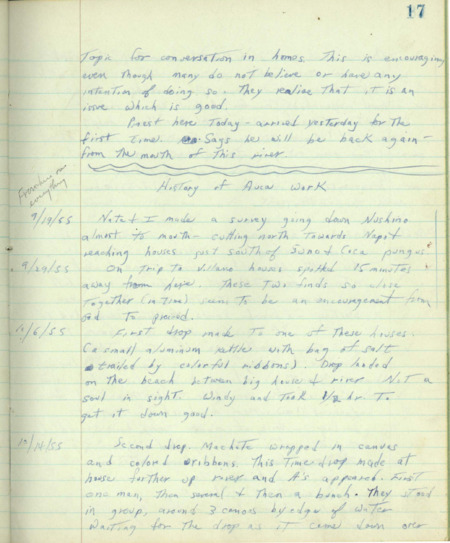 17
Topic for conversation in homes. This is encouraging
even though many do not believe or have any
intention of doing so. They realize that it is an
issue which is good.
Priest here today - arrived yesterday for the
first time. Says he will be back again -
from the mouth of this river.
History of Auca Work
9/19/55 Nate & I made a survey going down Nushino
almost to mouth - cutting north towards Napo &
reaching houses just south of
9/29/55 On trip to Villano houses spotted 15 minutes
away from here. These two finds so close
together (in time) seem to be an encouragement from
God to proceed.
10/6/55 First drop made to one of these houses.
(a small aluminum kettle with bag of salt
trailed by colorful ribbons). Drop landed
on the beach between big house & river. Not a
soul in sight. Windy and took 1/2 hr. to
get it down good.
Second drop. Machete wrapped in canvas
and colored ribbons. This time drop made at
house further up river and A's appeared. First
one man, then several & then a bunch. They stood
in group, around 3 canoes by edge of water
waiting for the drop as it came down over